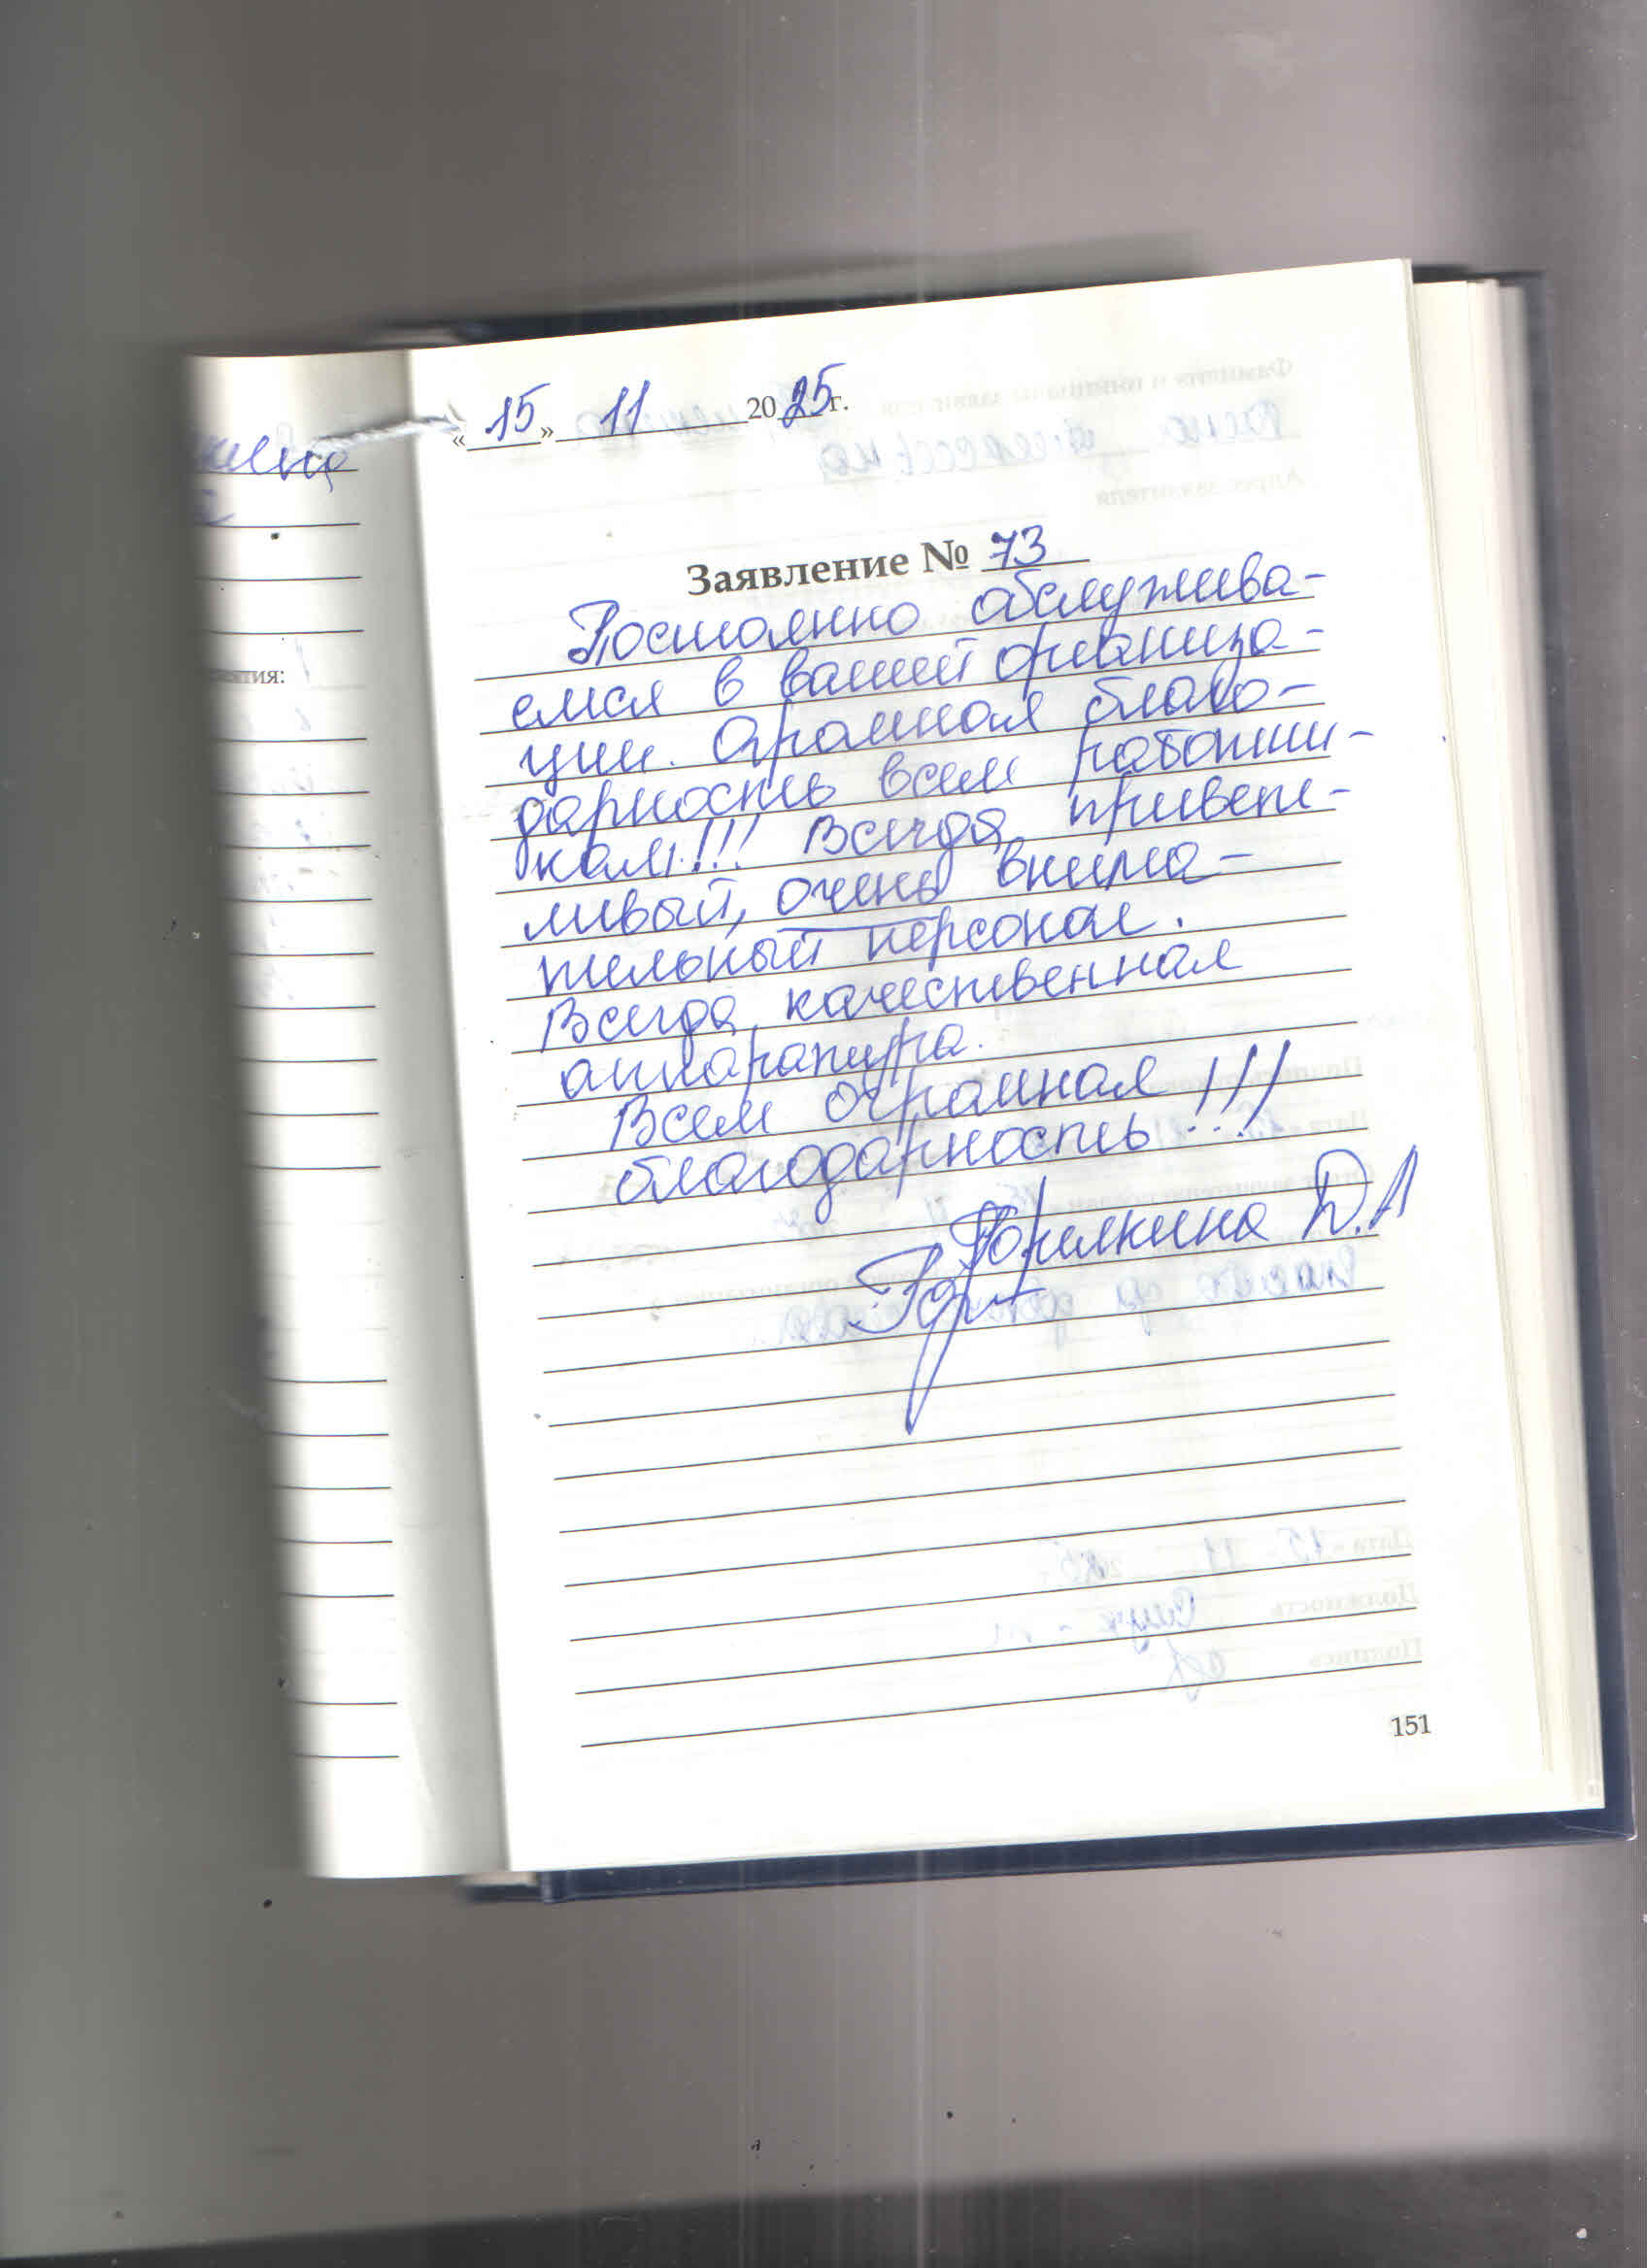 «15» 11 2025 г.
Заявление № 73
Постоянно обслужива-
емся в вашей организа-
ции. Огромная благо-
дарность всем работни-
кам!!! Всегда привет-
ливый, очень внима-
тельный персонал.
Всегда качественная
аппаратура.
Всем огромная
благодарность!!!
Д.А
151